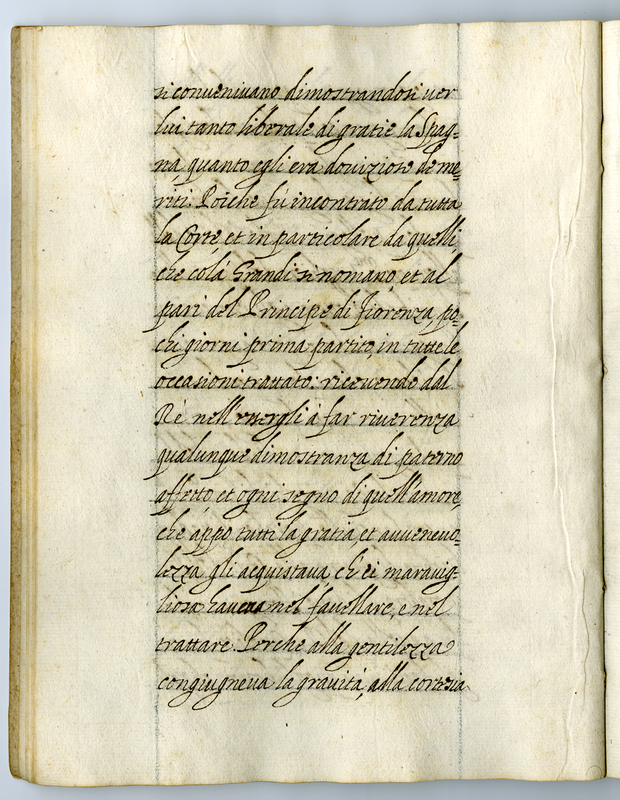 si convenivano dimostrandosi ver
lui tanto liberale di gratie la Spag=
na, quanto egli era dovizioso de me=
riti. Poiche fù incontrato da tutta
la Corte et in particolare da quelli,
che colà Grandi si nomano, et al
pari del Principe di Fiorenza, po=
chi giorni prima partito, in tutte le
occasioni trattato: ricevendo dal
Rè nell'
à far riverenza
qualunque dimostranza di paterno
affetto, et ogni segno di quell'amore,
che appo tutti la gratia, et avvenevo=
lezza gli acquistava, ch'ei maravig=
liosa haveva nel favellare, e nel
trattare. Perche alla gentilezza
congiugneva la gravità, alla cortesia